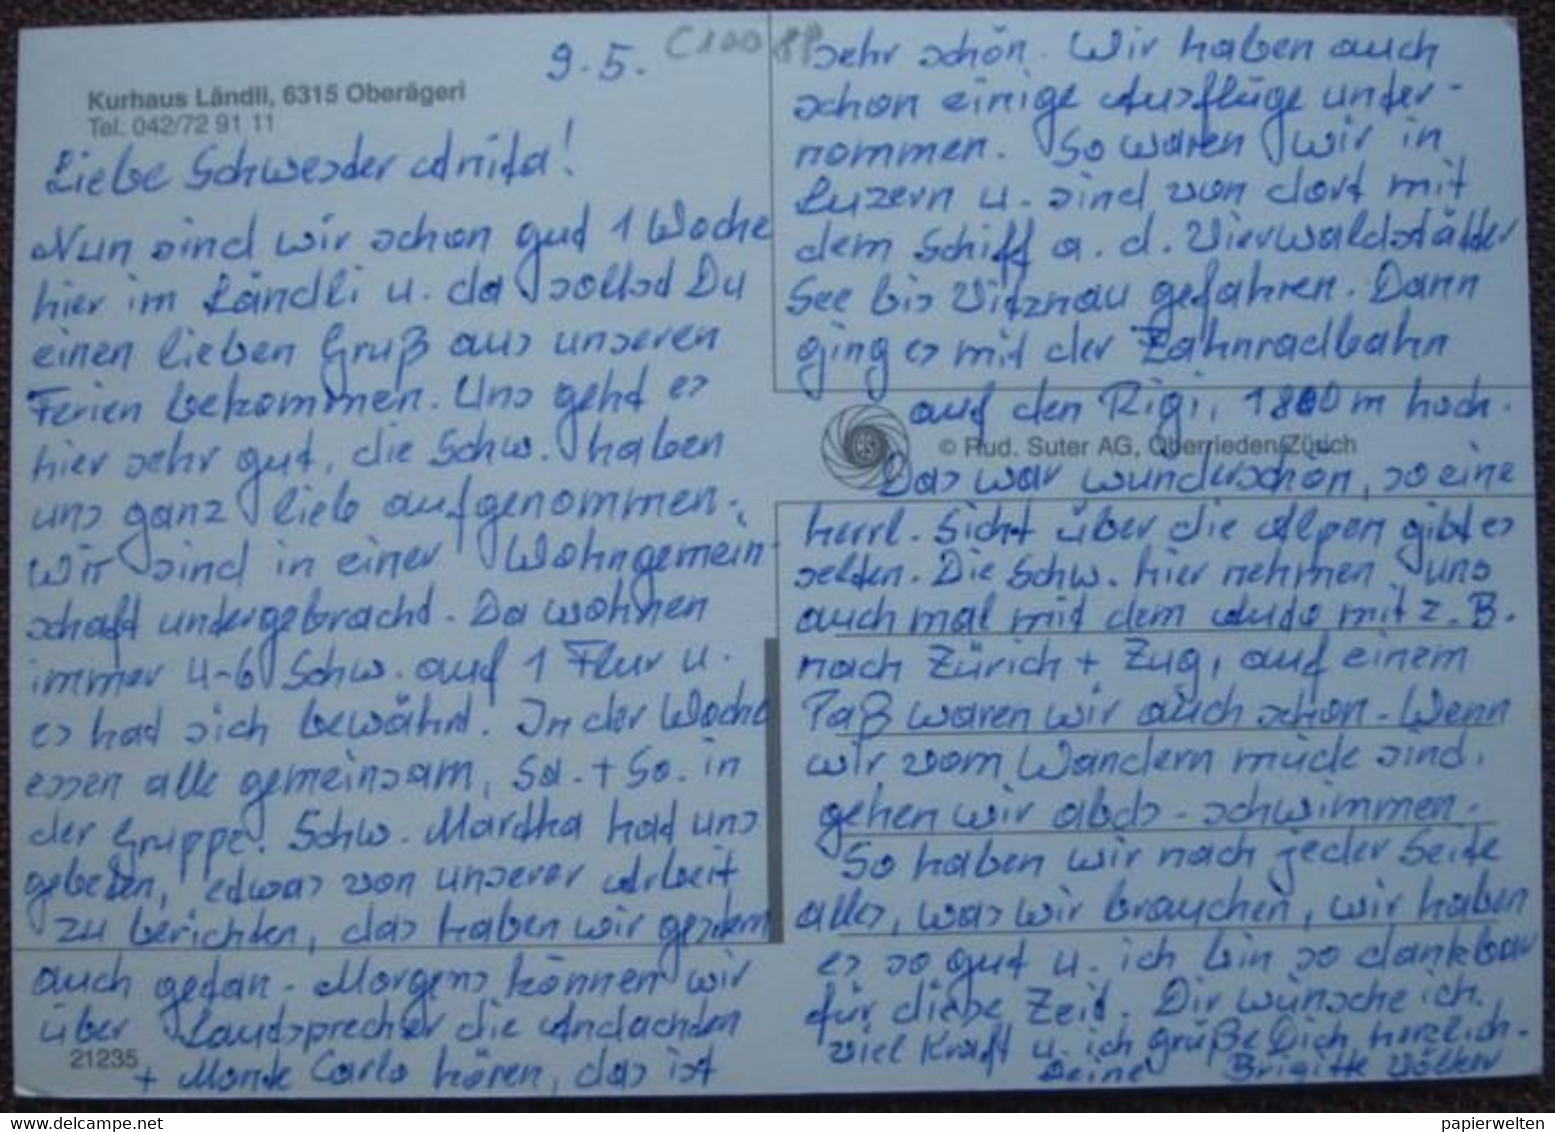 Kurhaus Ländli, 6315 Oberägeri
Tel. 042/72 91 11
9.5.
C10088
Liebe Schwester Anita!
Nun sind wir schon gut 1 Woche
hier im Ländli u. da sollst Du
einen lieben Gruß aus unseren
Ferien bekommen. Uns geht es
hier sehr gut, die Schw. haben
uns ganz lieb aufgenommen.
Wir sind in einer Wohngemein-
schaft untergebracht. Da wohnen
immer 4-6 Schw. auf 1 Flur u.
es hat sich bewährt. In der Woche
essen alle gemeinsam, Sa. + So. in
der Gruppe. Schw. Martha hat uns
gebeten, etwas von unserer Arbeit
zu berichten, das haben wir gestern
auch getan. Morgens können wir
über Lautsprecher die Andachten
+ Monte Carlo hören, das ist
21235
sehr schön. Wir haben auch
schon einige Ausflüge unter-
nommen. So waren wir in
Luzern u. sind von dort mit
dem Schiff a. d. Vierwaldstätter
See bis Vitznau gefahren. Dann
ging es mit der Zahnradbahn
auf den Rigi, 1800 m hoch.
© Rud. Suter AG, Oberrieden/Zürich
Das war wunderschön, so eine
herrl. Sicht über die Alpen gibt es
selten. Die Schw. hier nehmen uns
auch mal mit dem Auto mit z. B.
nach Zürich + Zug, auf einem
Paß waren wir auch schon. Wenn
wir vom Wandern müde sind,
gehen wir abds. schwimmen.
So haben wir nach jeder Seite
alles, was wir brauchen, wir haben
es so gut u. ich bin so dankbar
für diese Zeit. Dir wünsche ich
viel Kraft u. ich grüße Dich herzlich.
Deine Brigitte Völker
papierwelten